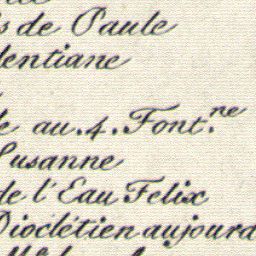 s de Paule
dentiane
e au.4.Font.ne
Susanne
de l'Eau Felix
Dioclétien aujourd